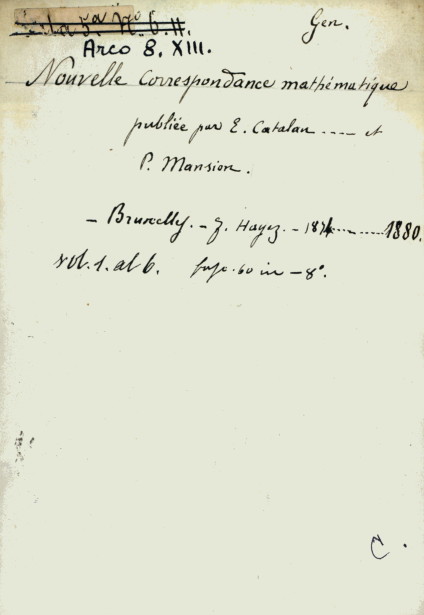 Gen.
5ª Nº 6. 11.
Arco 8. XIII.
Nouvelle correspondance mathématique
publiée par E. Catalan ---- et
P. Mansion.
- Bruxelles. - F. Hayez. - 1874 ---- 1880.
vol. 1. al 6. 60 in - 8º.
C.